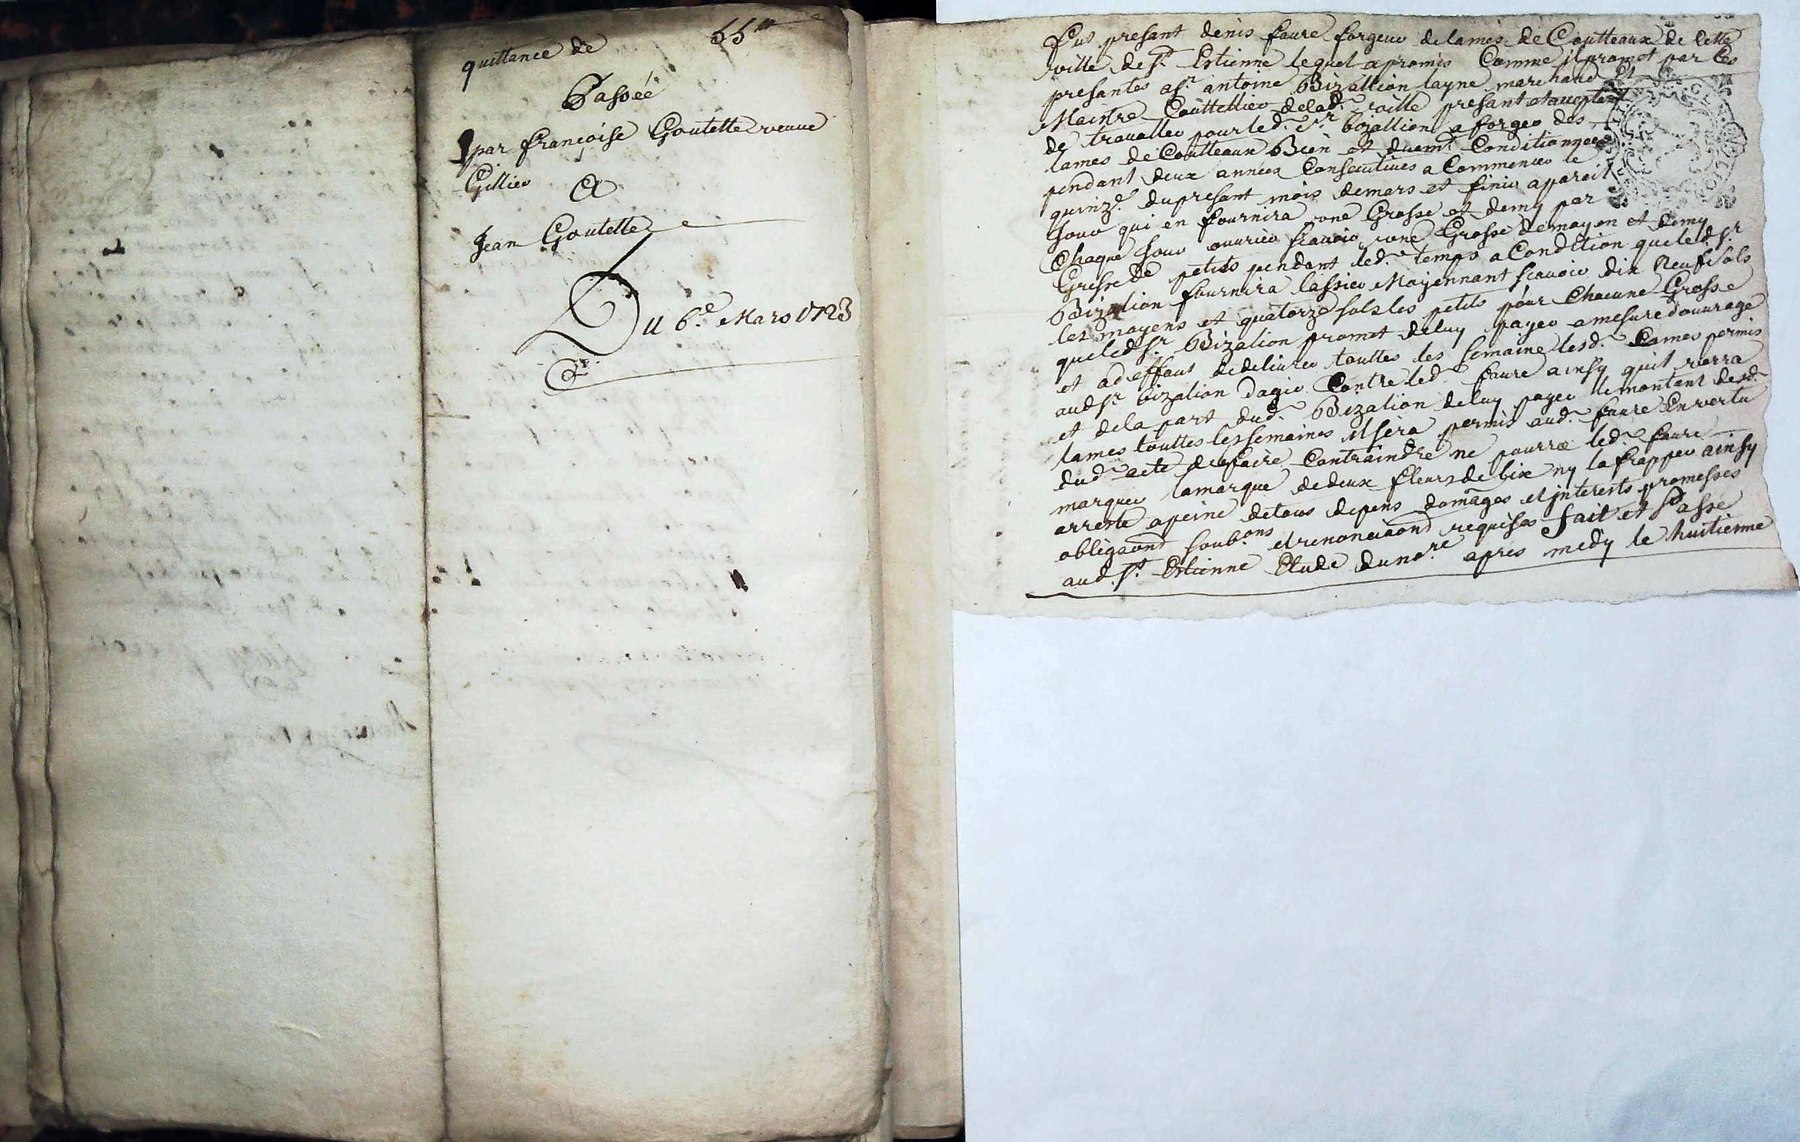 quittance de 55 tt
Passéé
par francoise Goutelle veuve
Gillier
A
Jean Goutelle
Du 6.e Mars 1723
fut presant denis faure forgeur de lames de Coutteaux de Cette
ville de St. Estienne lequel a promis Comme il promet par Ces
presantes a sr. antoine Bizallion layne marchand et
Maitre Couttellier de lad. ville presant et acceptant
de travaller pour led. Sr. bizallion a forger des
lames de Coutteaux Bien et duemt. Conditionnees
pendant deux années Consecutives a Commencer le
quinze. du presant mois de mars et finir a pareil
Jour qui en fournira une Grosse et demy par
Chaque Jour ouvrier scavoir une Grosse de moyen et demy
Grosse de petits pendant led. temps a Condition que led. Sr.
Bizalion fournira lassier Moyennant scavoir dix neuf sols
les moyens et quatorze sols les petits pour Chacune Grosse
que led. Sr. Bizalion promet de luy payer a mesure douvrage
et a deffaut de delivrer touttes les semaine lesd. Lames permis
aud. Sr. bizalion dagir Contre led. faure ainsy quil verra
et de la part dud. Bizalion de luy payer le montant desd.
lames touttes les semaines il sera permis aud. faure En vertu
dud. acte de le faire Contraindre ne pourra led. faure
marquer lamarque de deux fleurs de lix ny la frapper ainsy
arresté a peine de tous depens domages et interests promesses
obligaons soub.ons et renonciaons requises fait et Passé
aud. St. Estienne Etude du nore apres midy le huitienme